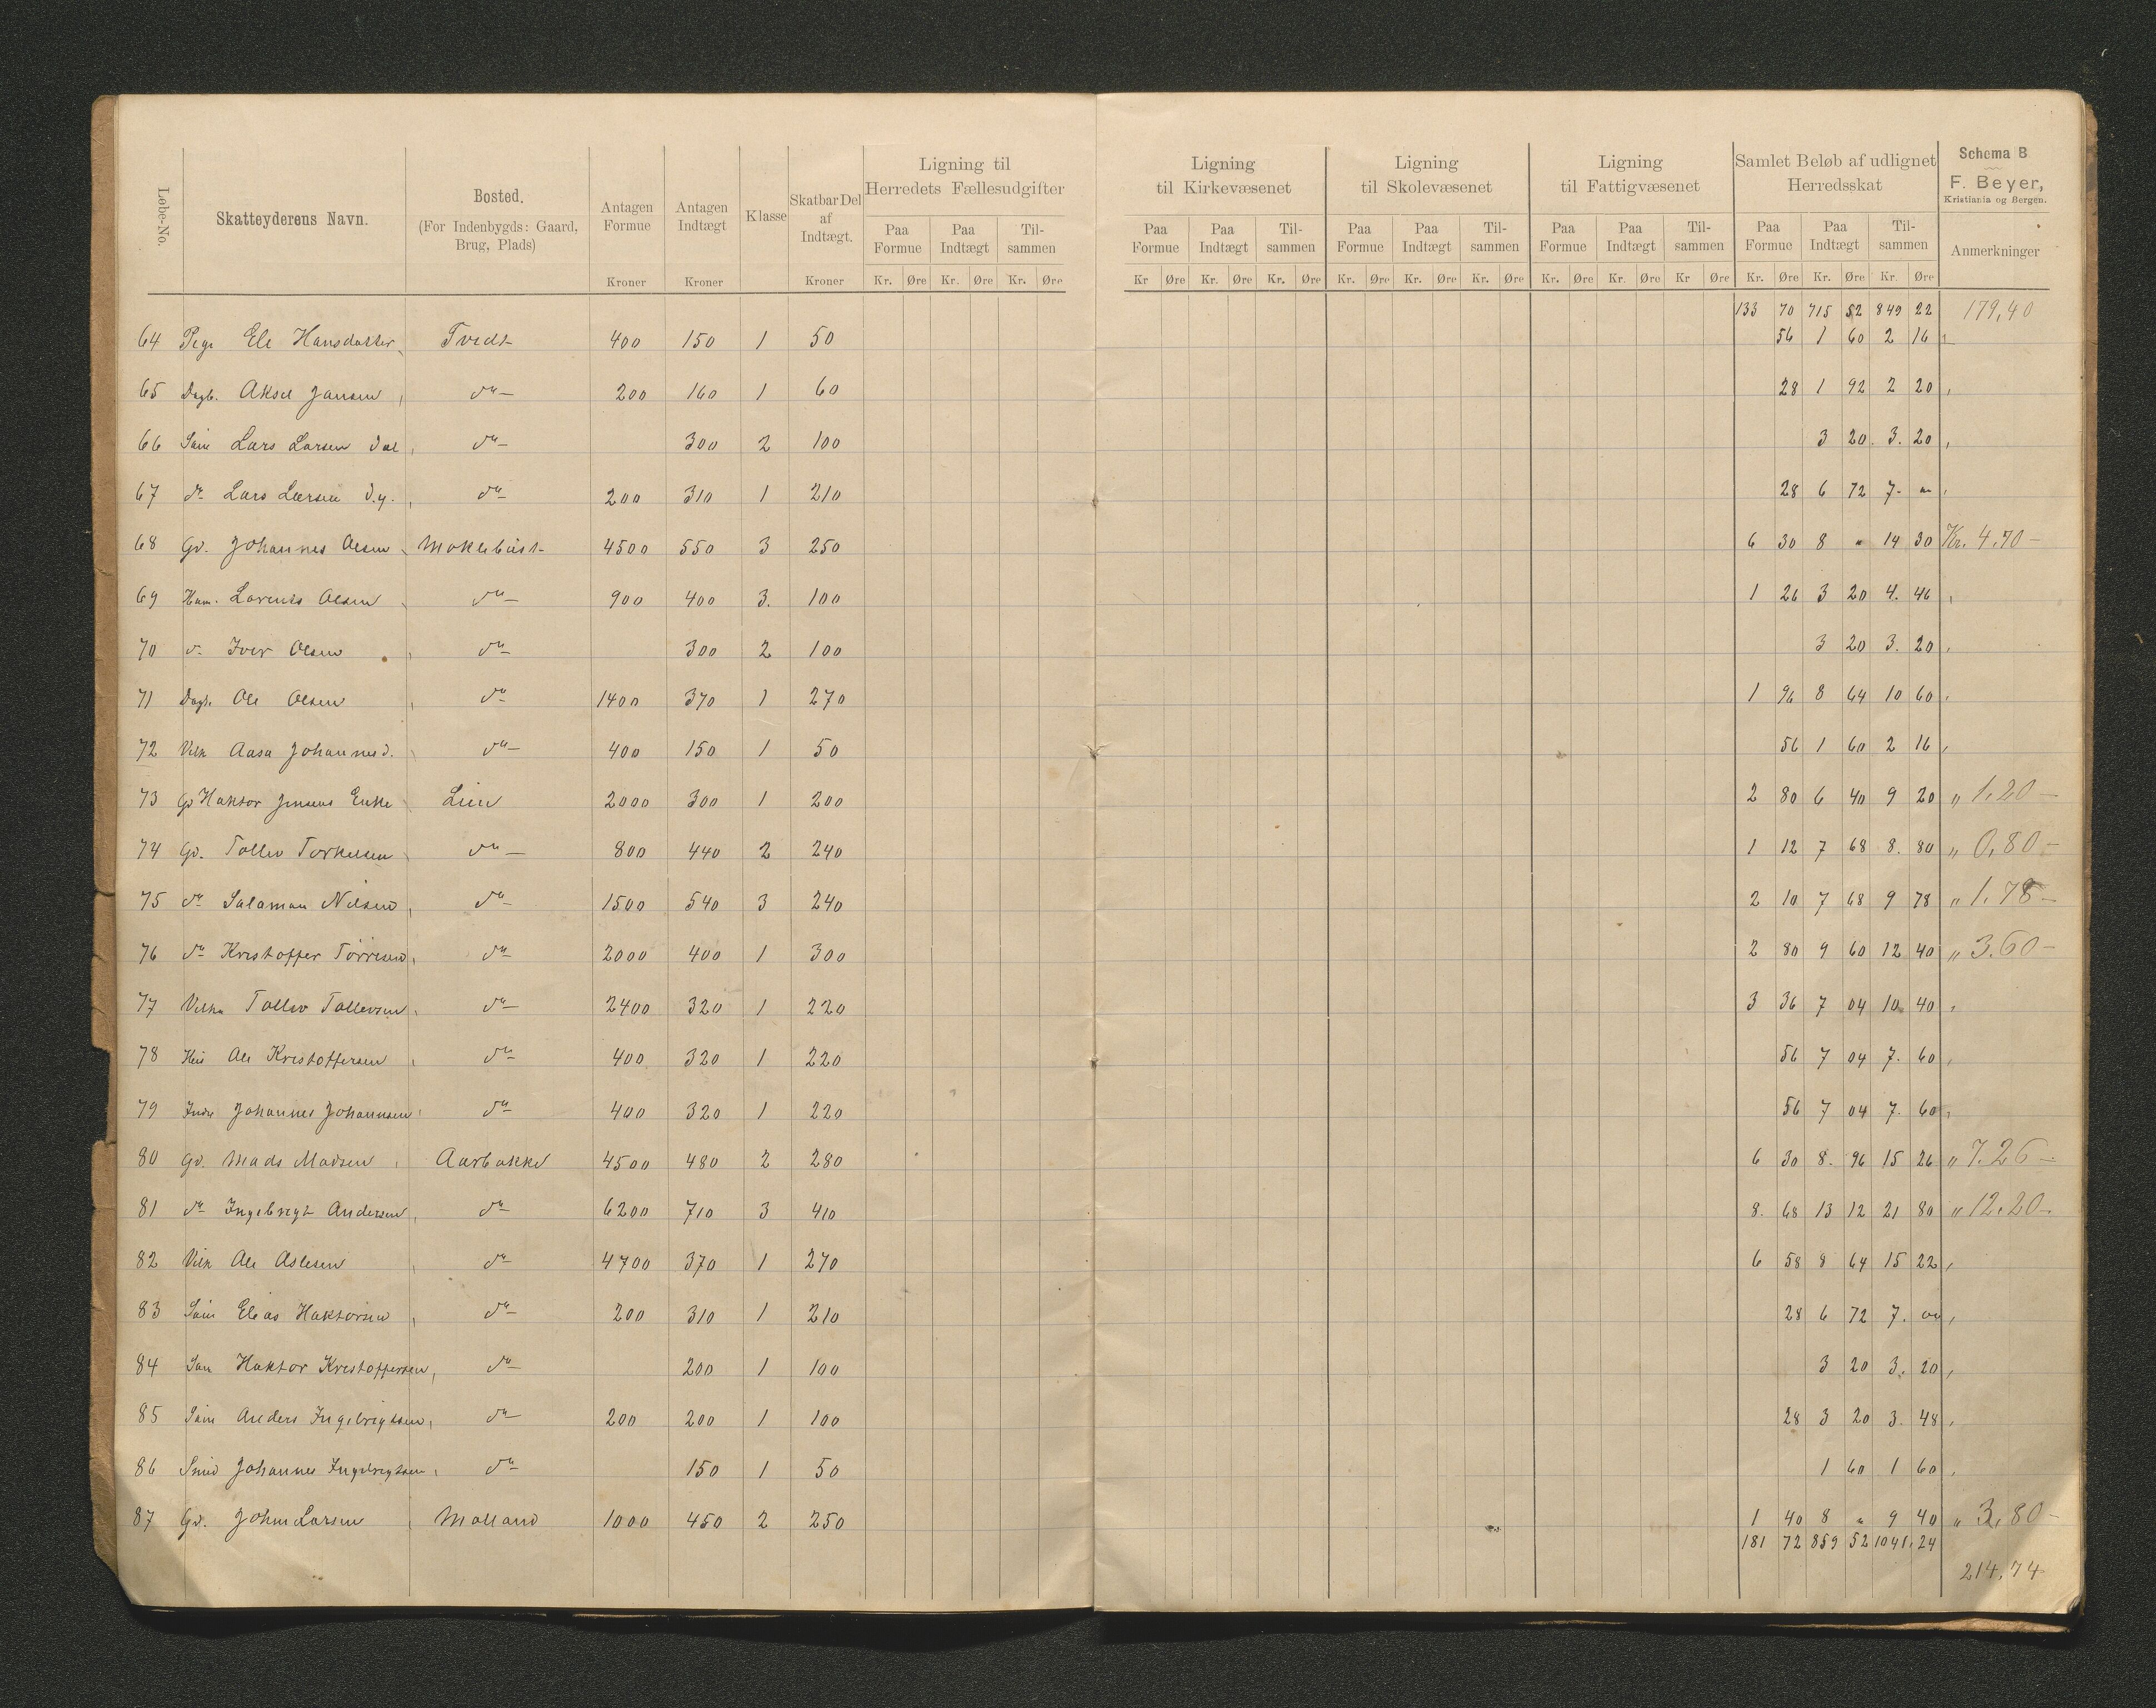 Løbe-No. Skatteyderens Navn. Bosted. (For Indenbygds: Gaard, Brug, Plads) Antagen Formue Kroner Antagen Indtægt Kroner Klasse Skatbar Del af Indtægt. Kroner Ligning til Herredets Fællesudgifter Paa Formue Paa Indtægt Tilsammen Kr. Øre Kr. Øre Kr. Øre
Ligning til Kirkevæsenet Paa Formue Paa Indtægt Tilsammen Kr Øre Kr. Øre Kr. Øre
Ligning til Skolevæsenet Paa Formue Paa Indtægt Tilsammen Kr. Øre Kr. Øre Kr. Øre
Ligning til Fattigvæsenet Paa Formue Paa Indtægt Tilsammen Kr. Øre Kr. Øre Kr Øre
Samlet Beløb af udlignet Herredsskat Paa Formue Paa Indtægt Tilsammen Kr. Øre Kr. Øre Kr. Øre
Schema B
F. Beyer,
Kristiania og Bergen.
Anmerkninger
133 70 715 52 849 22 179,40
64 Pige Ele Hansdatter Tvedt 400 150 1 50 56 1 60 2 16
65 Dagb. Aksel Jansen do 200 160 1 60 28 1 92 2 20
66 Søm Lars Larsen do 300 2 100 3 20 3. 20
67 do Lars Larsen d.y. do 200 310 1 210 28 6 72 7. "
68 Gd. Johannes Olsen 4500 550 3 250 6 30 8 " 14 30 Kr. 4.70 –
69 Lorents Olsen do 900 400 3. 100 1 26 3 20 4. 46
70 do Iver Olsen do 300 2 100 3 20 3. 20
71 Dagb. Ole Olsen do 1400 370 1 270 1 96 8 64 10 60
72 Aasa Johannesd. do 400 150 1 50 56 1 60 2 16
73 Gd Haktor Jensens Enke Lien 2000 300 1 200 2 80 6 40 9 20 " 1,20 –
74 Gd. Tollev Torkelsen do 800 440 2 240 1 12 7 68 8. 80 " 0,80 –
75 do Salamon Nilsen do 1500 540 3 240 2 10 7 68 9 78 " 1.78 –
76 do Kristoffer Tørresen do 2000 400 1 300 2 80 9 60 12 40 " 3.60 –
77 Tollev Tollevsen do 2400 320 1 220 3 36 7 04 10 40
78 Ole Kristoffersen do 400 320 1 220 56 7 04 7. 60
79 Johannes Johannsen do 400 320 1 220 56 7 04 7. 60
80 Gd. Mads Madsen Aarbakke 4500 480 2 280 6 30 8. 96 15 26 " 7.26 –
81 do Ingebrigt Andersen do 6200 710 3 410 8. 68 13 12 21 80 " 12.20 –
82 Ole Aslesen do 4700 370 1 270 6 58 8 64 15 22
83 Søm Elias Haktorsen do 200 310 1 210 28 6 72 7. 00
84 Haktor Kristoffersen do 200 1 100 3 20 3. 20
85 Søm Anders Ingebrigtsen do 200 200 1 100 28 3 20 3. 48
86 Smed Johannes Ingebrigtsen do 150 1 50 1 60 1 60
87 Gd. John Larsen Molland 1000 450 2 250 1 40 8 " 9 40 " 3,80 –
181 72 859 52 1041.24
214,74